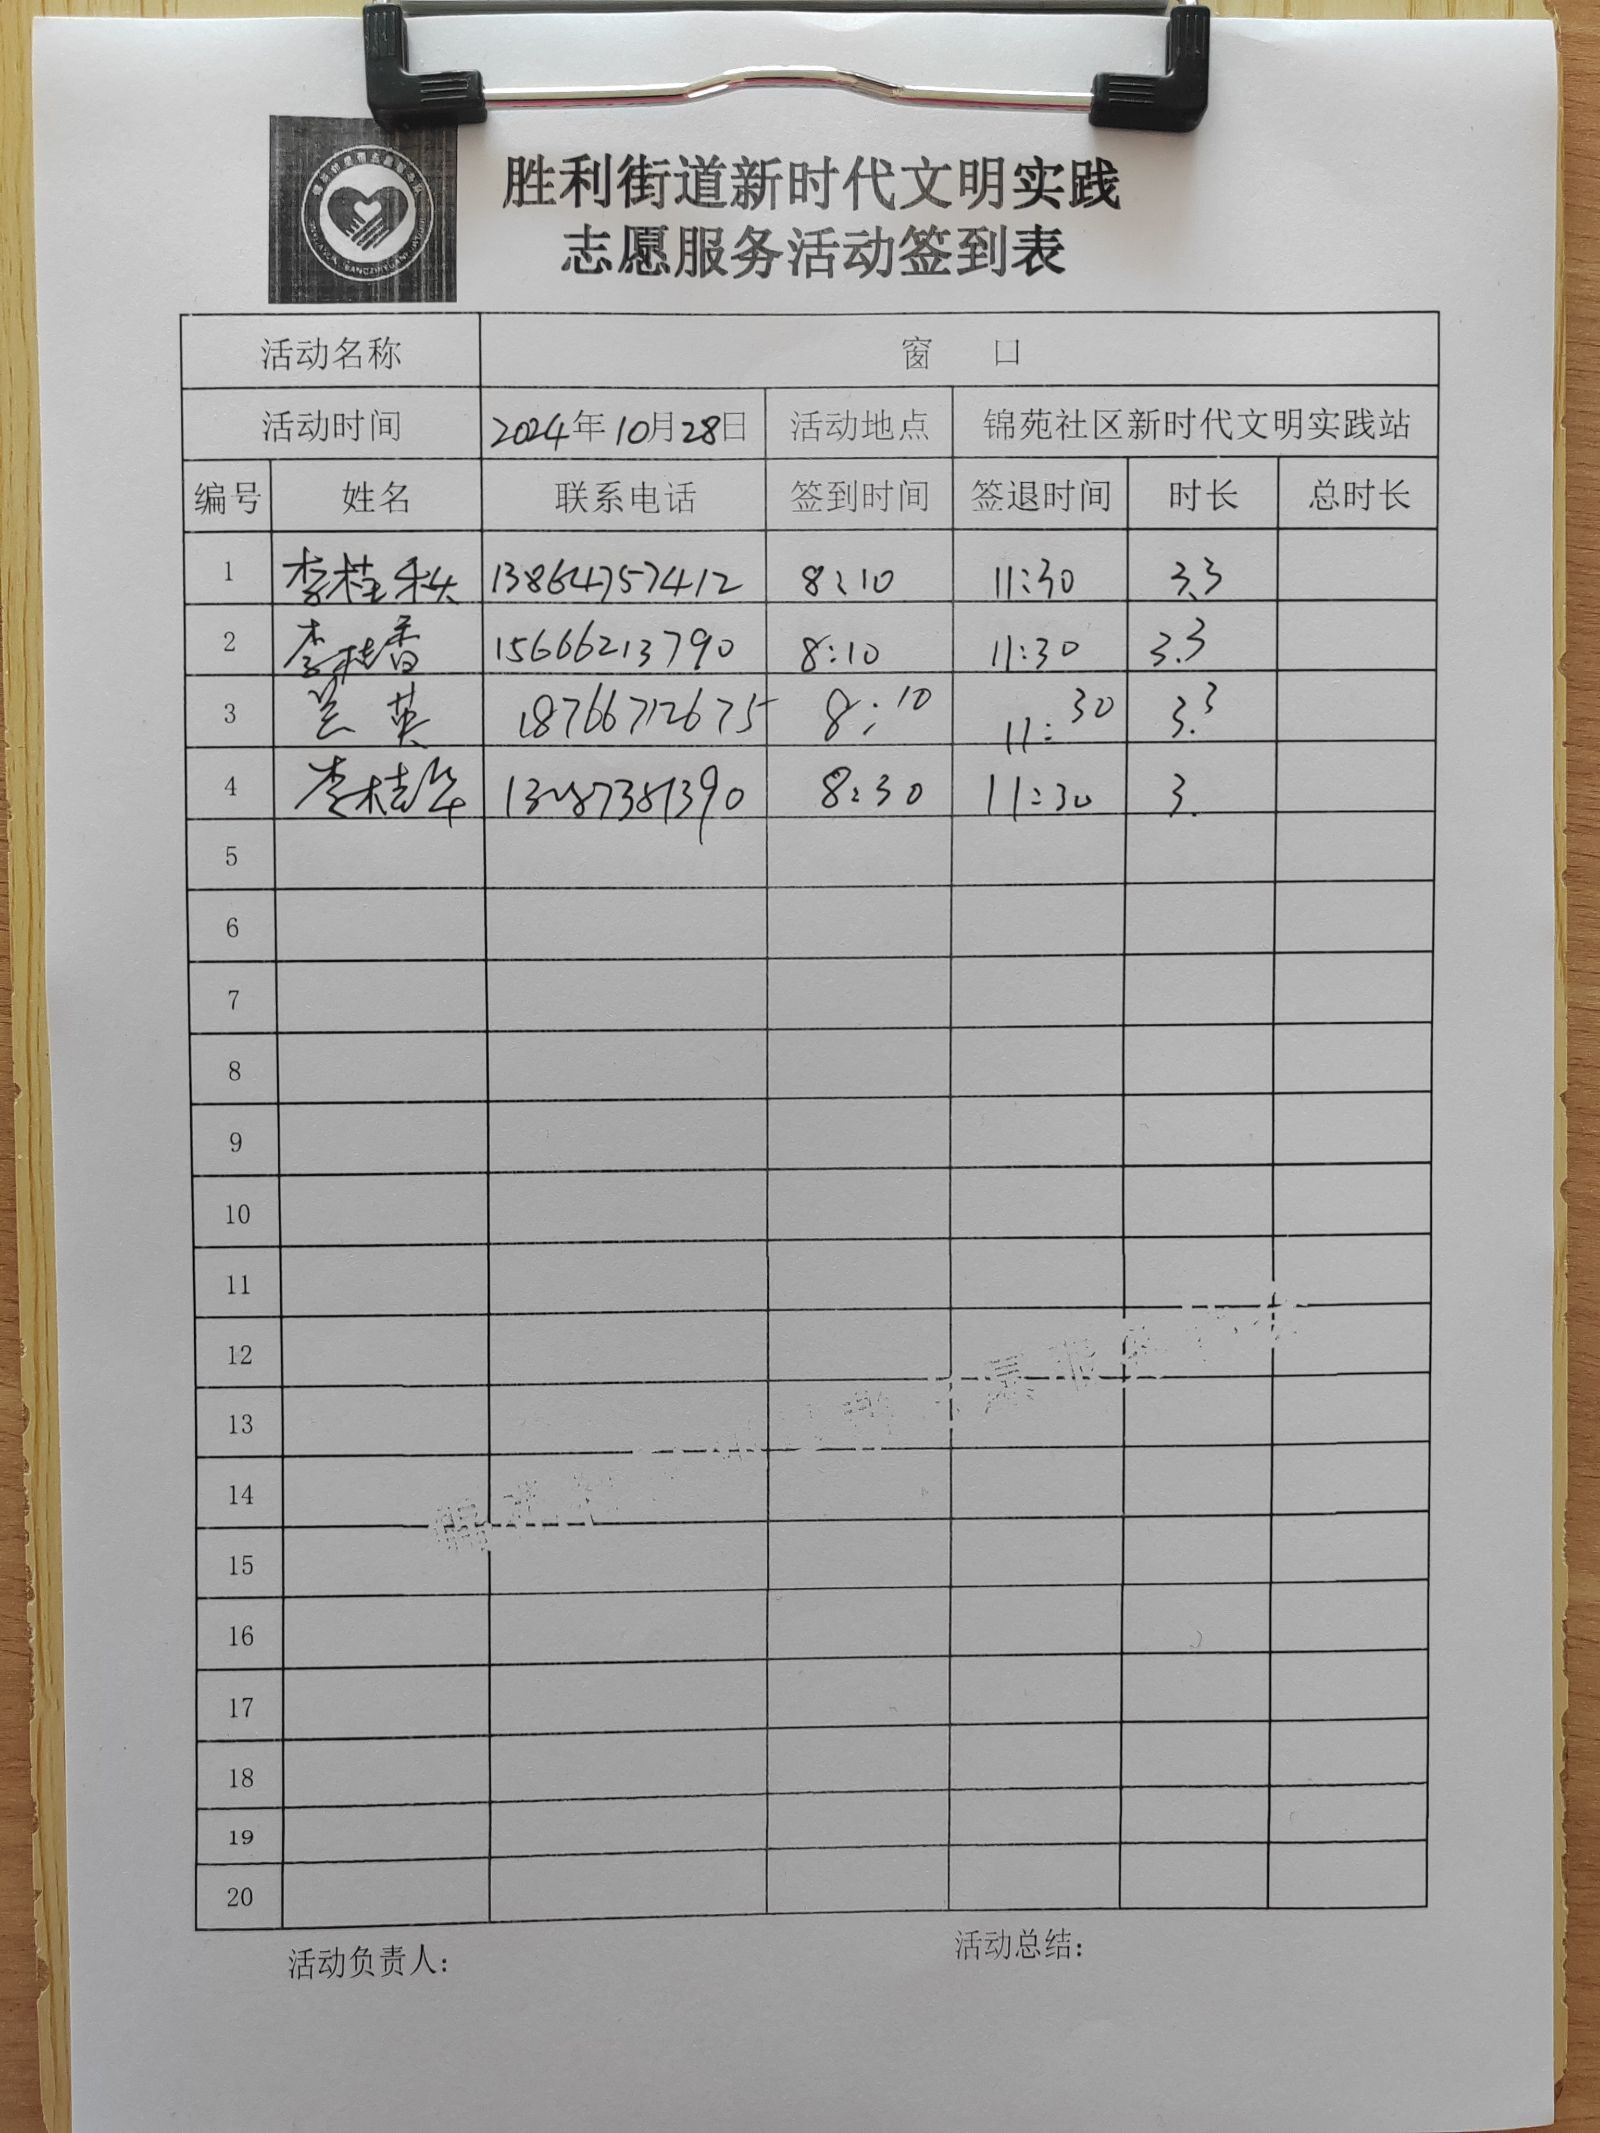 胜利街道新时代文明实践
志愿服务活动签到表
活动名称 窗 口
活动时间 2024年10月28日 活动地点 锦苑社区新时代文明实践站
编号 姓名 联系电话 签到时间 签退时间 时长 总时长
1 李桂秋 13864757412 8:10 11:30 3.3
2 李桂香 15666213790 8:10 11:30 3.3
3 兰英 18766712675 8:10 11:30 3.3
4 李桂华 8:30 11:30 3.
5
6
7
8
9
10
11
12
13
14
15
16
17
18
19
20
活动负责人: 活动总结: